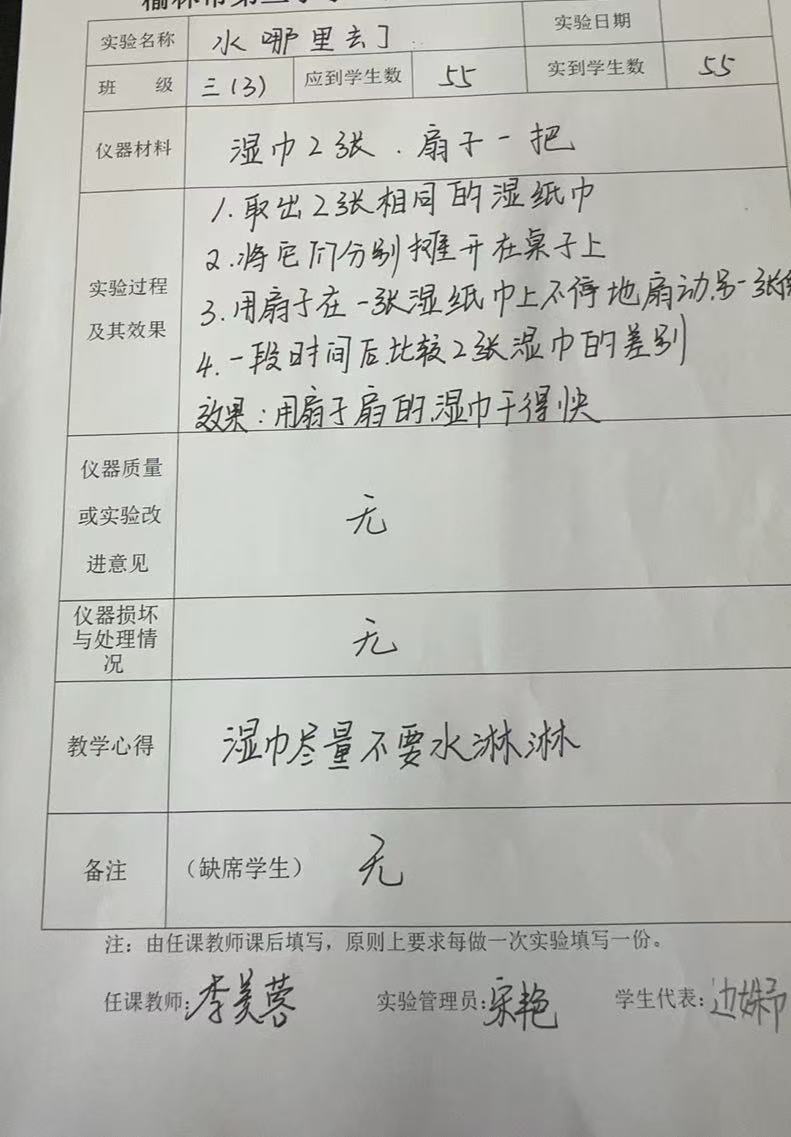 实验名称 水哪里去了 实验日期
班 级 三(3) 应到学生数 55 实到学生数 55
仪器材料 湿巾2张、扇子一把
1.取出2张相同的湿纸巾
2.将它们分别摊开在桌子上
实验过程
3.用扇子在一张湿纸巾上不停地扇动,另一张
及其效果
4.一段时间后,比较2张湿巾的差别
效果:用扇子扇的湿巾干得快
仪器质量
或实验改
进意见
无
仪器损坏
与处理情
况
无
教学心得 湿巾尽量不要水淋淋
备注 (缺席学生) 无
注:由任课教师课后填写,原则上要求每做一次实验填写一份。
任课教师:李美蓉 实验管理员:宋艳 学生代表:边姝